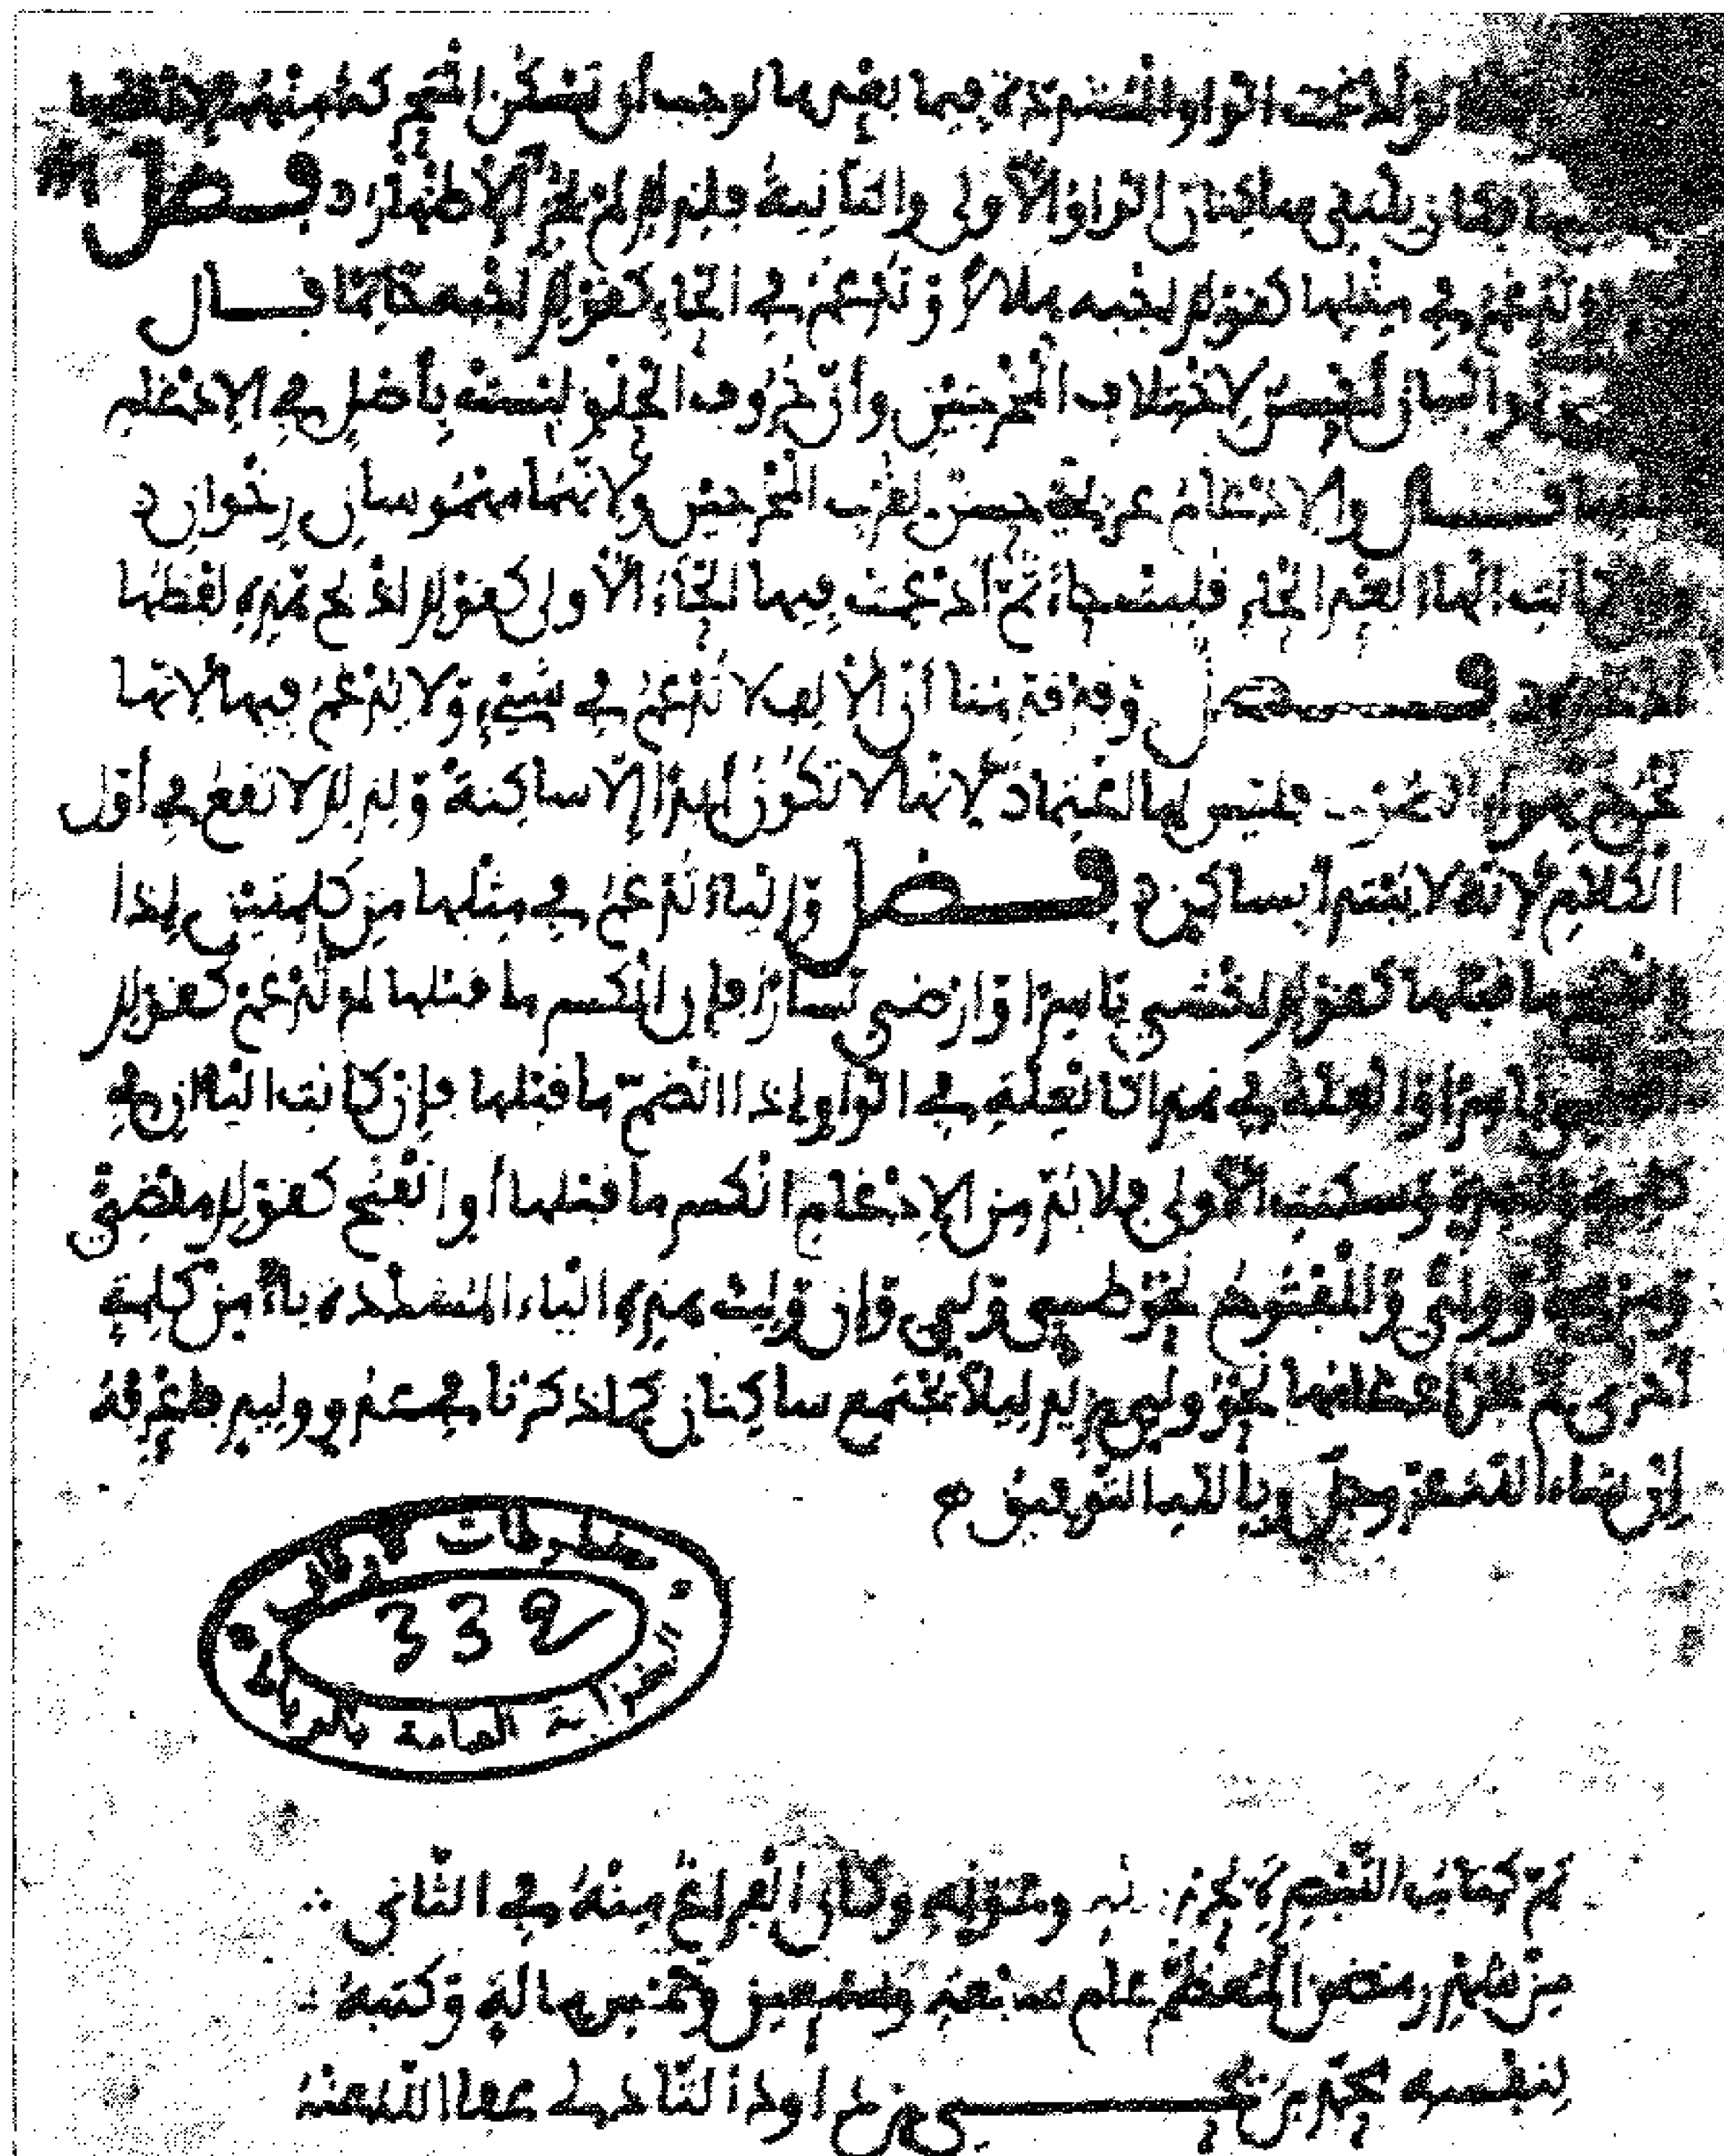 ولو أدغمت الواو المشددة فيما بعدها لوجب أن تسكن
فكان يلتقي ساكنان الواو الأولى والثانية فلذلك لم يجز إلا الإظهار فصل
تدغم في مثلها كقولك اجبه هلالا وتدغم في الحاء كقولك اجبه حاتما قال
والبيان أحسن لاختلاف المخرجين وأن حروف الحلق ليست بأصل في الإدغام
قال والإدغام عربي حسن لقرب المخرجين ولأنهما مهموسان رخوان
الهاء الحاء قلبت حاء ثم أدغمت فيها الحاء الأولى كقولك اذبح هذه لفظها
فصل وقد قدمنا أن الألف لا تدغم في شيء ولا يدغم فيها لأنها
فليس لها اعتماد لأنها لا تكون أبدا إلا ساكنة ولذلك لا تقع في أول
الكلام لأنه لا يبتدأ بساكن فصل والياء تدغم في مثلها من كلمتين إذا
انفتح ما قبلها كقولك اخشي ياسرا وارضي يسارا فإن انكسر ما قبلها لم تدغم كقولك
ياسرا والعلة في هذا كالعلة في الواو إذا انضم ما قبلها فإن كانت الياءان في
كلمة واحدة وسكنت الأولى فلا بد من الإدغام انكسر ما قبلها أو انفتح كقولك مقضي
وولي والمفتوح نحو طي ولي وإن وليت هذه الياء المشددة ياء من كلمة
أخرى لم يجز إدغامها نحو ولي يزيد ليلا يجتمع ساكنان كما ذكرنا في عدو وليد فاعرفه
إن شاء الله عز وجل وبالله التوفيق
مخطوطات الأوقاف
332
الخزانة العامة بالرباط
تم كتاب التبصرة بحمد الله وعونه وكان الفراغ منه في الثاني
من شهر رمضن المعظم عام سبعة وتسعين وخمس ماية وكتبه
لنفسه محمد بن يحيى بن داود التادلي عفا الله عنه